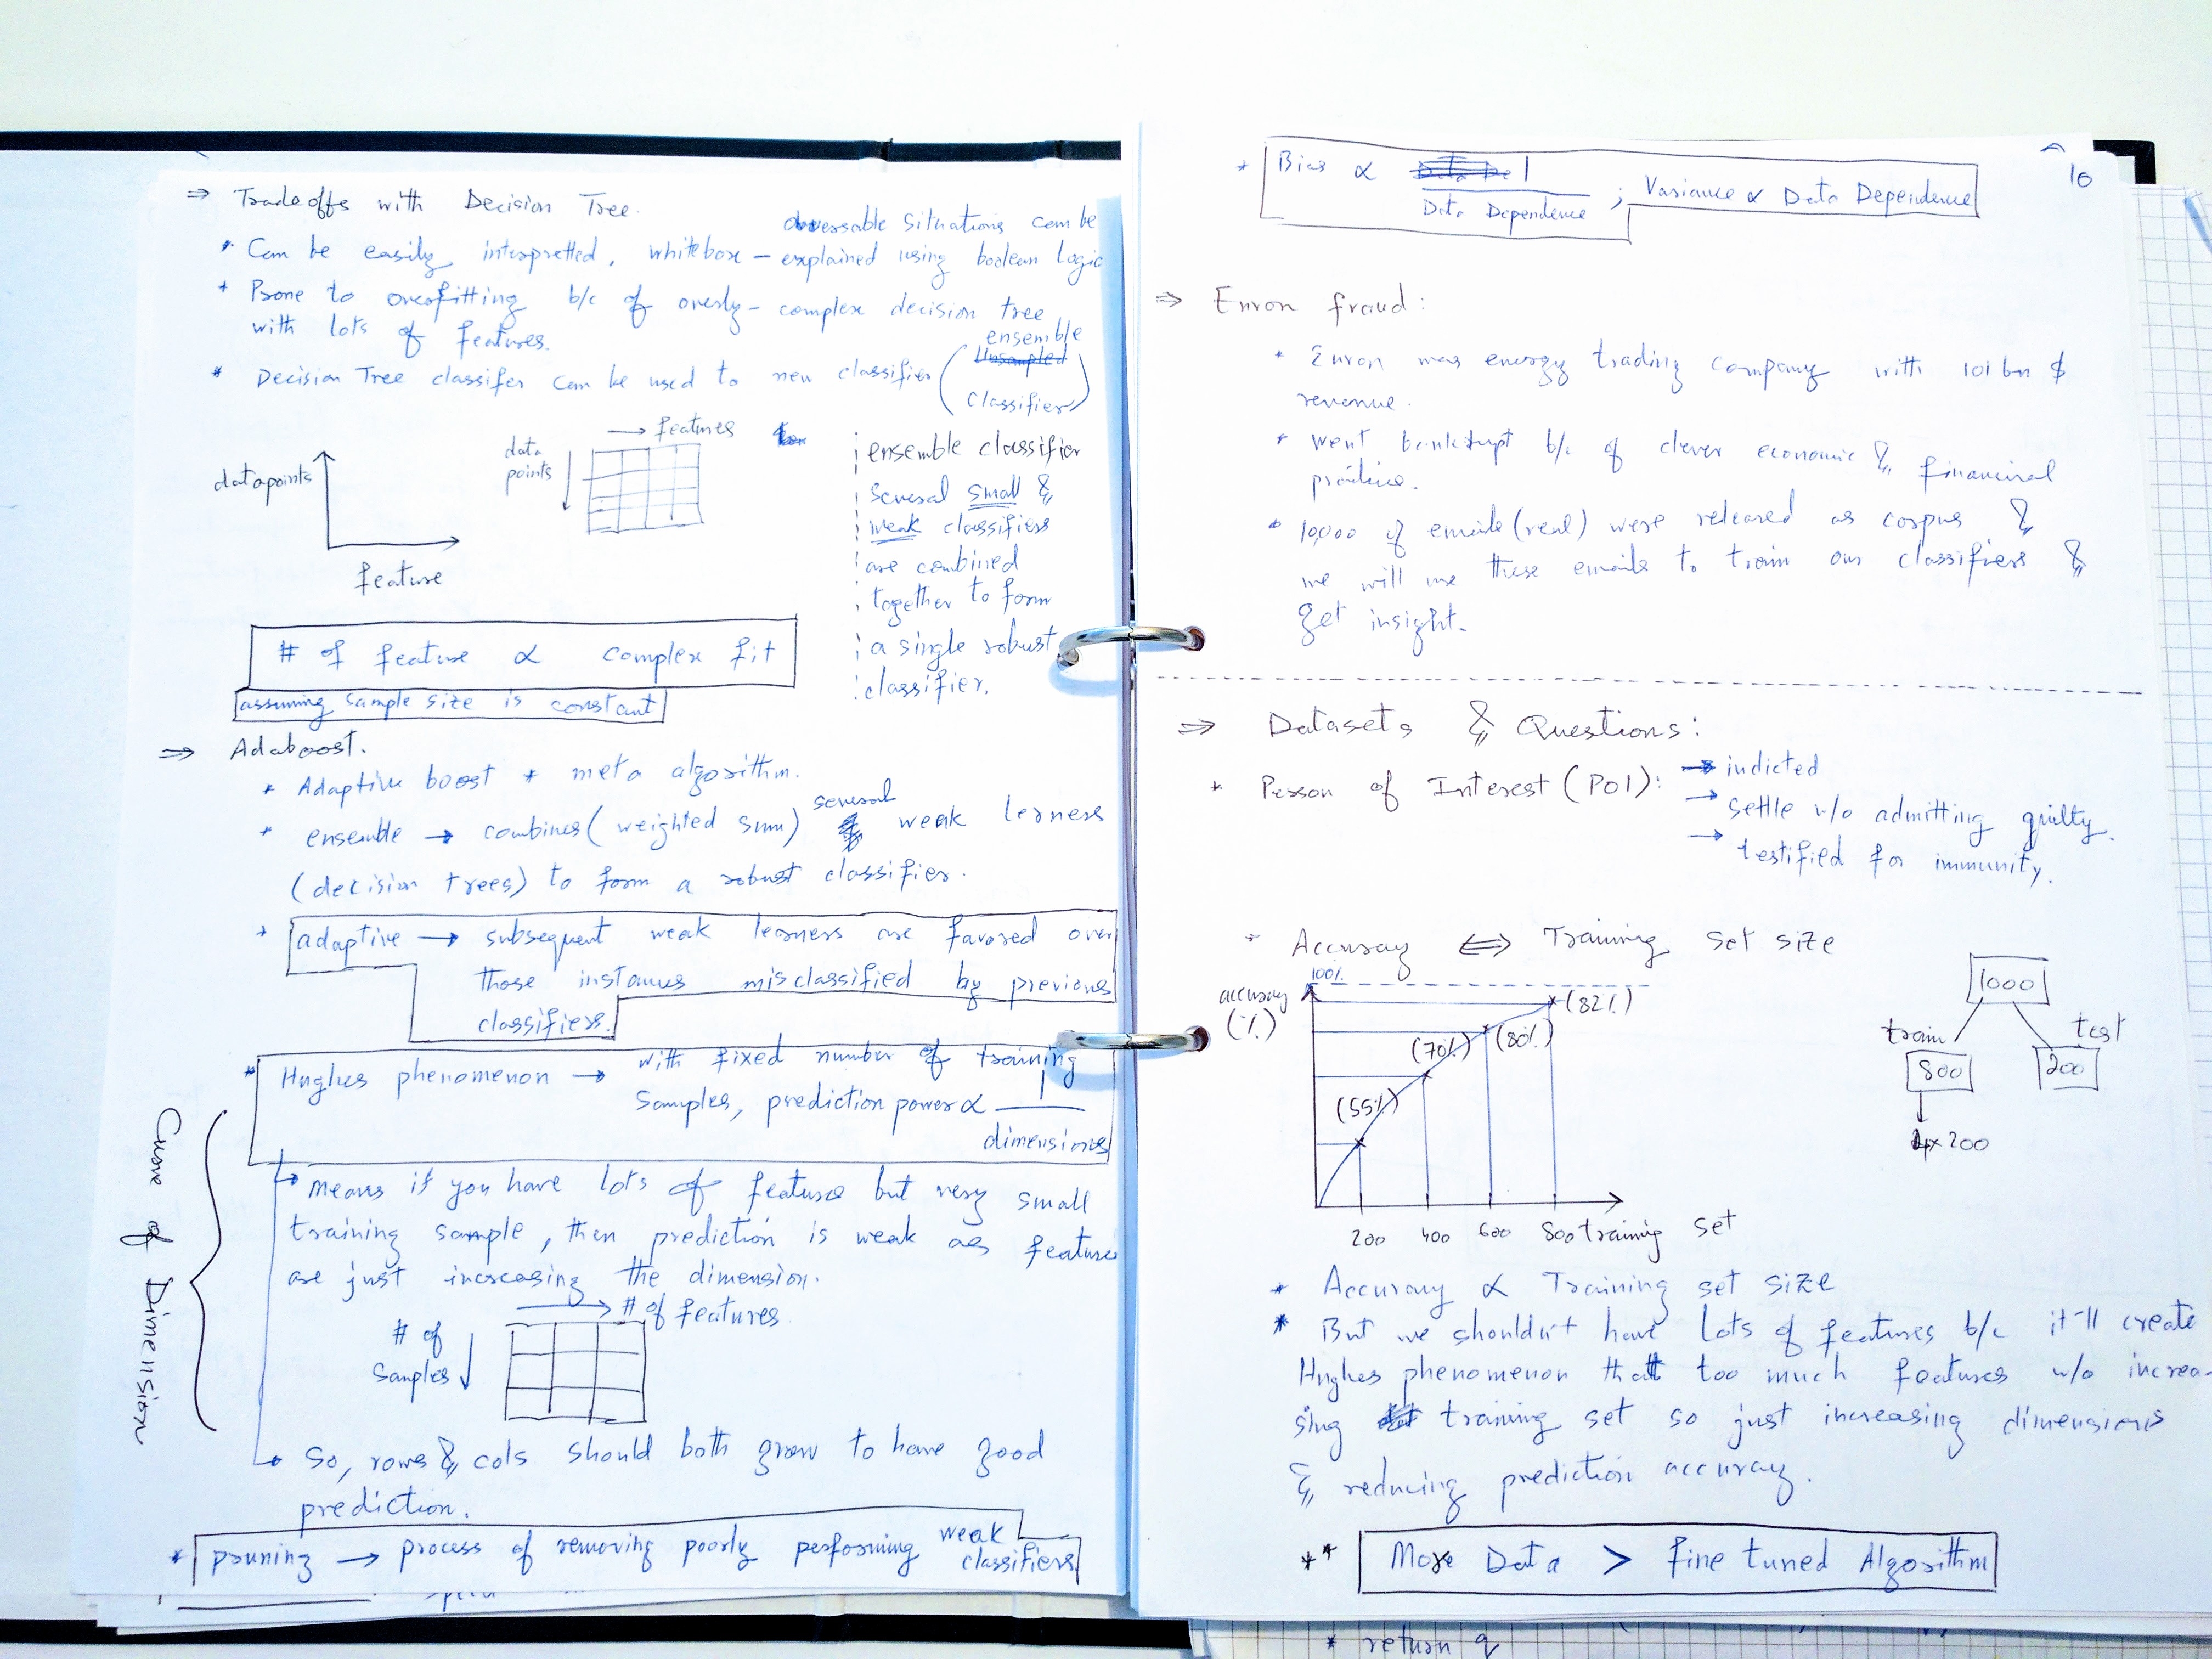 ⇒ Tradeoffs with Decision Tree.
observable situations can be
* Can be easily interpretted, whitebox – explained using boolean logic
* Prone to overfitting b/c of overly-complex decision tree
with lots of features.
* Decision Tree classifer can be used to new classifier (ensemble
classifier)
datapoints
feature
→ features
data
points
ensemble classifier
several small &
weak classifiers
are combined
together to form
a single robust
classifier.
# of feature ∝ complex fit
assuming sample size is constant
⇒ Adaboost.
* Adaptive boost * meta algorithm.
* ensemble → combines (weighted sum) several weak lerners
(decision trees) to form a robust classifier.
* adaptive → subsequent weak learners are favored over
those instances misclassified by previous
classifiers.
* Hughes phenomenon → with fixed number of training
samples, prediction power ∝ 1
dimensions
Curse of Dimension
↳ means if you have lots of features but very small
training sample, then prediction is weak as features
are just increasing the dimension.
→ # of features
# of
samples ↓
↳ So, rows & cols should both grow to have good
prediction.
* pruning → process of removing poorly performing weak
classifiers
10
* Bias ∝ 1
Data Dependence ; Variance ∝ Data Dependence
⇒ Enron fraud:
* Enron was energy trading company with 101 bn $
revenue.
* Went bankrupt b/c of clever economic & financial
practice.
* 10,000 of emails (real) were released as corpus &
we will use these emails to train our classifiers &
get insight.
⇒ Datasets & Questions:
* Person of Interest (POI): → indicted
→ settle w/o admitting guilty.
→ testified for immunity.
* Accuracy ⇔ Training set size
100%
accuracy
(%)
(82%)
(80%)
(70%)
(55%)
200 400 600 800 training set
1000
train
test
800
200
4x200
* Accuracy ∝ Training set size
* But we shouldn't have lots of features b/c it'll create
Hughes phenomenon that too much features w/o increa-
sing training set so just increasing dimensions
& reducing prediction accuracy.
** More Data > fine tuned Algorithm
* return